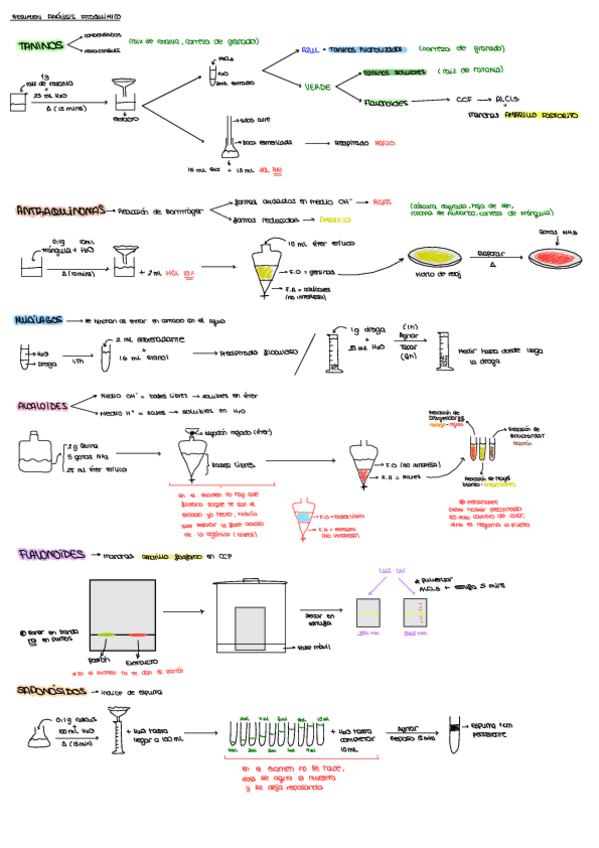 RESUMEN ANÁLISIS FITOQUÍMICO
TANINOS
CONDENSADOS
HIDROLIZABLES
(raiz de ratania, corteza de granado)
1g
raiz de ratania
+
25 mL H2O
Δ (15 mins)
Extracto
FeCl3
H2O
2mL extracto
AZUL = Taninos hidrolizables (corteza de granado)
VERDE
(raiz de ratania)
Flavonoides
CCF
AlCl3
manchas AMARILLO FOSFORITO
tubo aire
boca esmerilada
+ 15 mL HCl
Precipitado ROJIZO
ANTRAQUINONAS
Reacción de Bornträger
formas oxidadas en medio OH⁻ → ROJAS
formas reducidas → AMARILLO
(cáscara sagrada, hoja de sen,
rizoma de ruibarbo, corteza de frángula)
0.1g
10mL
frángula + H2O
Δ (10 mins)
+ 2 mL HCl 10%
10 mL éter etílico
F.O = geninas
F.A =
(no interesa)
Vidrio de reloj
Evaporar
Δ
gotas NH3
MUCÍLAGOS
se hinchan al entrar en contacto con el agua
H2O
Droga
2 mL sobrenadante
+
10 mL etanol
Precipitado floculoso
1g droga
+
25 mL H2O
(1h)
Agitar
Tapar
(6h)
Medir hasta donde llega
la droga
ALCALOIDES
Medio OH⁻ = bases libres → solubles en éter
Medio H⁺ = sales → solubles en H2O
2g Quina
5 gotas NH3
25 mL éter etílico
algodón mojado (éter)
bases libres
En el examen no hay que
filtrarlo porque te dan el
filtrado ya hecho, habría
que separar la fase acuosa
de la orgánica (éterea)
F.O (no interesa)
F.A = sales
F.O = bases libres
F.A =
(no interesa)
Reacción de
Dragendorff
naranja - rojizo
Reacción de
Bouchardat
marrón
Reacción de Mayer
blanco - amarillento
Debe haber precipitado
no solo cambio de color,
sino es negativa la prueba
FLAVONOIDES
manchas amarillo fosforito en CCF
Poner en banda
no en puntos
Patrón
Extracto
* En el examen no te dan el patrón
Fase móvil
Secar en
estufa
LUZ UV
254 nm
365 nm
* Pulverizar
AlCl3 + estufa 5 mins
SAPONÓSIDOS
índice de espuma
0.1g
+
100 mL H2O
Δ (15min)
+ H2O hasta
llegar a 100 mL
2mL 4mL 6mL 8mL 10mL
1mL 3mL 5mL 7mL 9mL
+ H2O hasta
completar
10 mL
Agitar
Reposo 15 min
Espuma 1cm
persistente
En el examen no se hace,
solo se agita la muestra
y se deja reposando